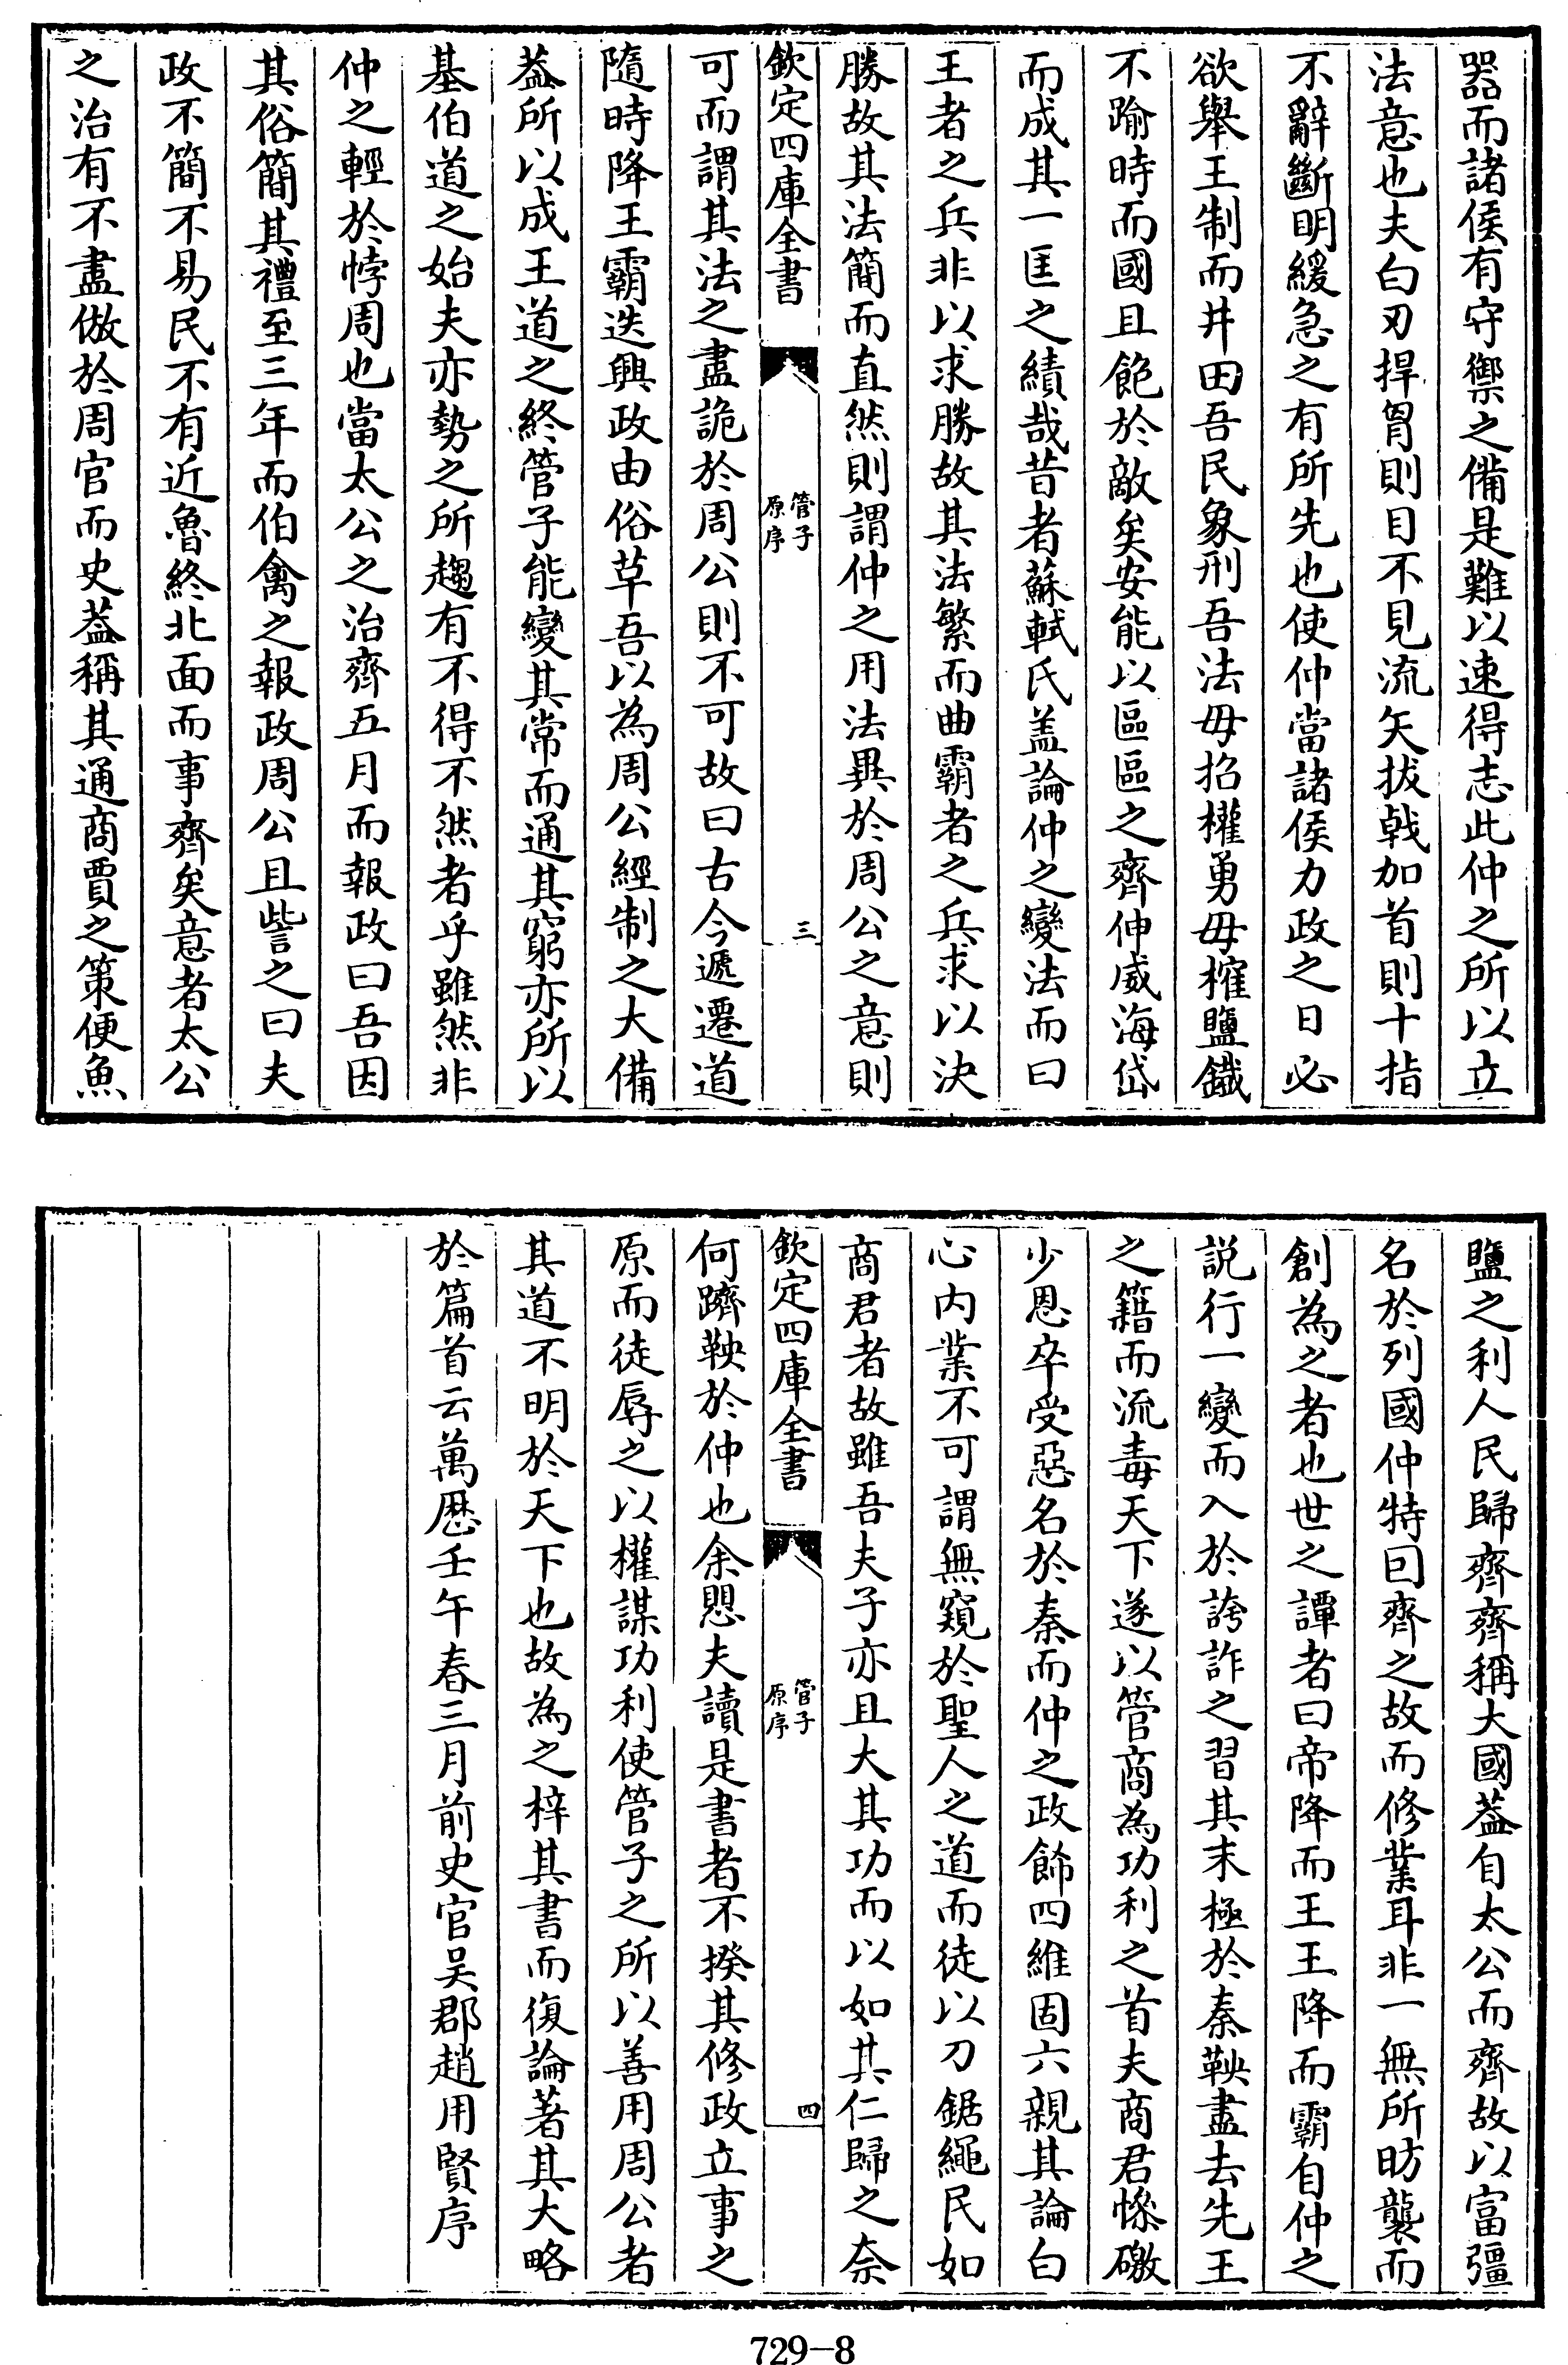 器而諸侯有守禦之備是難以速得志此仲之所以立
法意也夫白刃捍胷則目不見流矢拔戟加首則十指
不辭斷明緩急之有所先也使仲當諸侯力政之日必
欲舉王制而井田吾民象刑吾法毋招權勇毋榷鹽鐵
不踰時而國且飽於敵矣安能以區區之齊伸威海岱
而成其一匡之績哉昔者蘇軾氏盖論仲之變法而曰
王者之兵非以求勝故其法繁而曲霸者之兵求以決
勝故其法簡而直然則謂仲之用法異於周公之意則
欽定四庫全書
管子
原序
三
可而謂其法之盡詭於周公則不可故曰古今遞遷道
隨時降王霸迭興政由俗草吾以為周公經制之大備
葢所以成王道之終管子能變其常而通其窮亦所以
基伯道之始夫亦勢之所趨有不得不然者乎雖然非
仲之輕於悖周也當太公之治齊五月而報政曰吾因
其俗簡其禮至三年而伯禽之報政周公且訾之曰夫
政不簡不易民不有近魯終北面而事齊矣意者太公
之治有不盡倣於周官而史葢稱其通商賈之策便魚
鹽之利人民歸齊齊稱大國葢自太公而齊故以富彊
名於列國仲特因齊之故而修業耳非一無所昉襲而
創為之者也世之譚者曰帝降而王王降而霸自仲之
説行一變而入於誇詐之習其末極於秦鞅盡去先王
之籍而流毒天下遂以管商為功利之首夫商君慘礉
少恩卒受惡名於秦而仲之政飾四維固六親其論白
心内業不可謂無窺於聖人之道而徒以刀鋸繩民如
商君者故雖吾夫子亦且大其功而以如其仁歸之奈
欽定四庫全書
管子
原序
四
何躋鞅於仲也余愳夫讀是書者不揆其修政立事之
原而徒辱之以權謀功利使管子之所以善用周公者
其道不明於天下也故為之梓其書而復論著其大略
於篇首云萬厯壬午春三月前史官吴郡趙用賢序
729-8